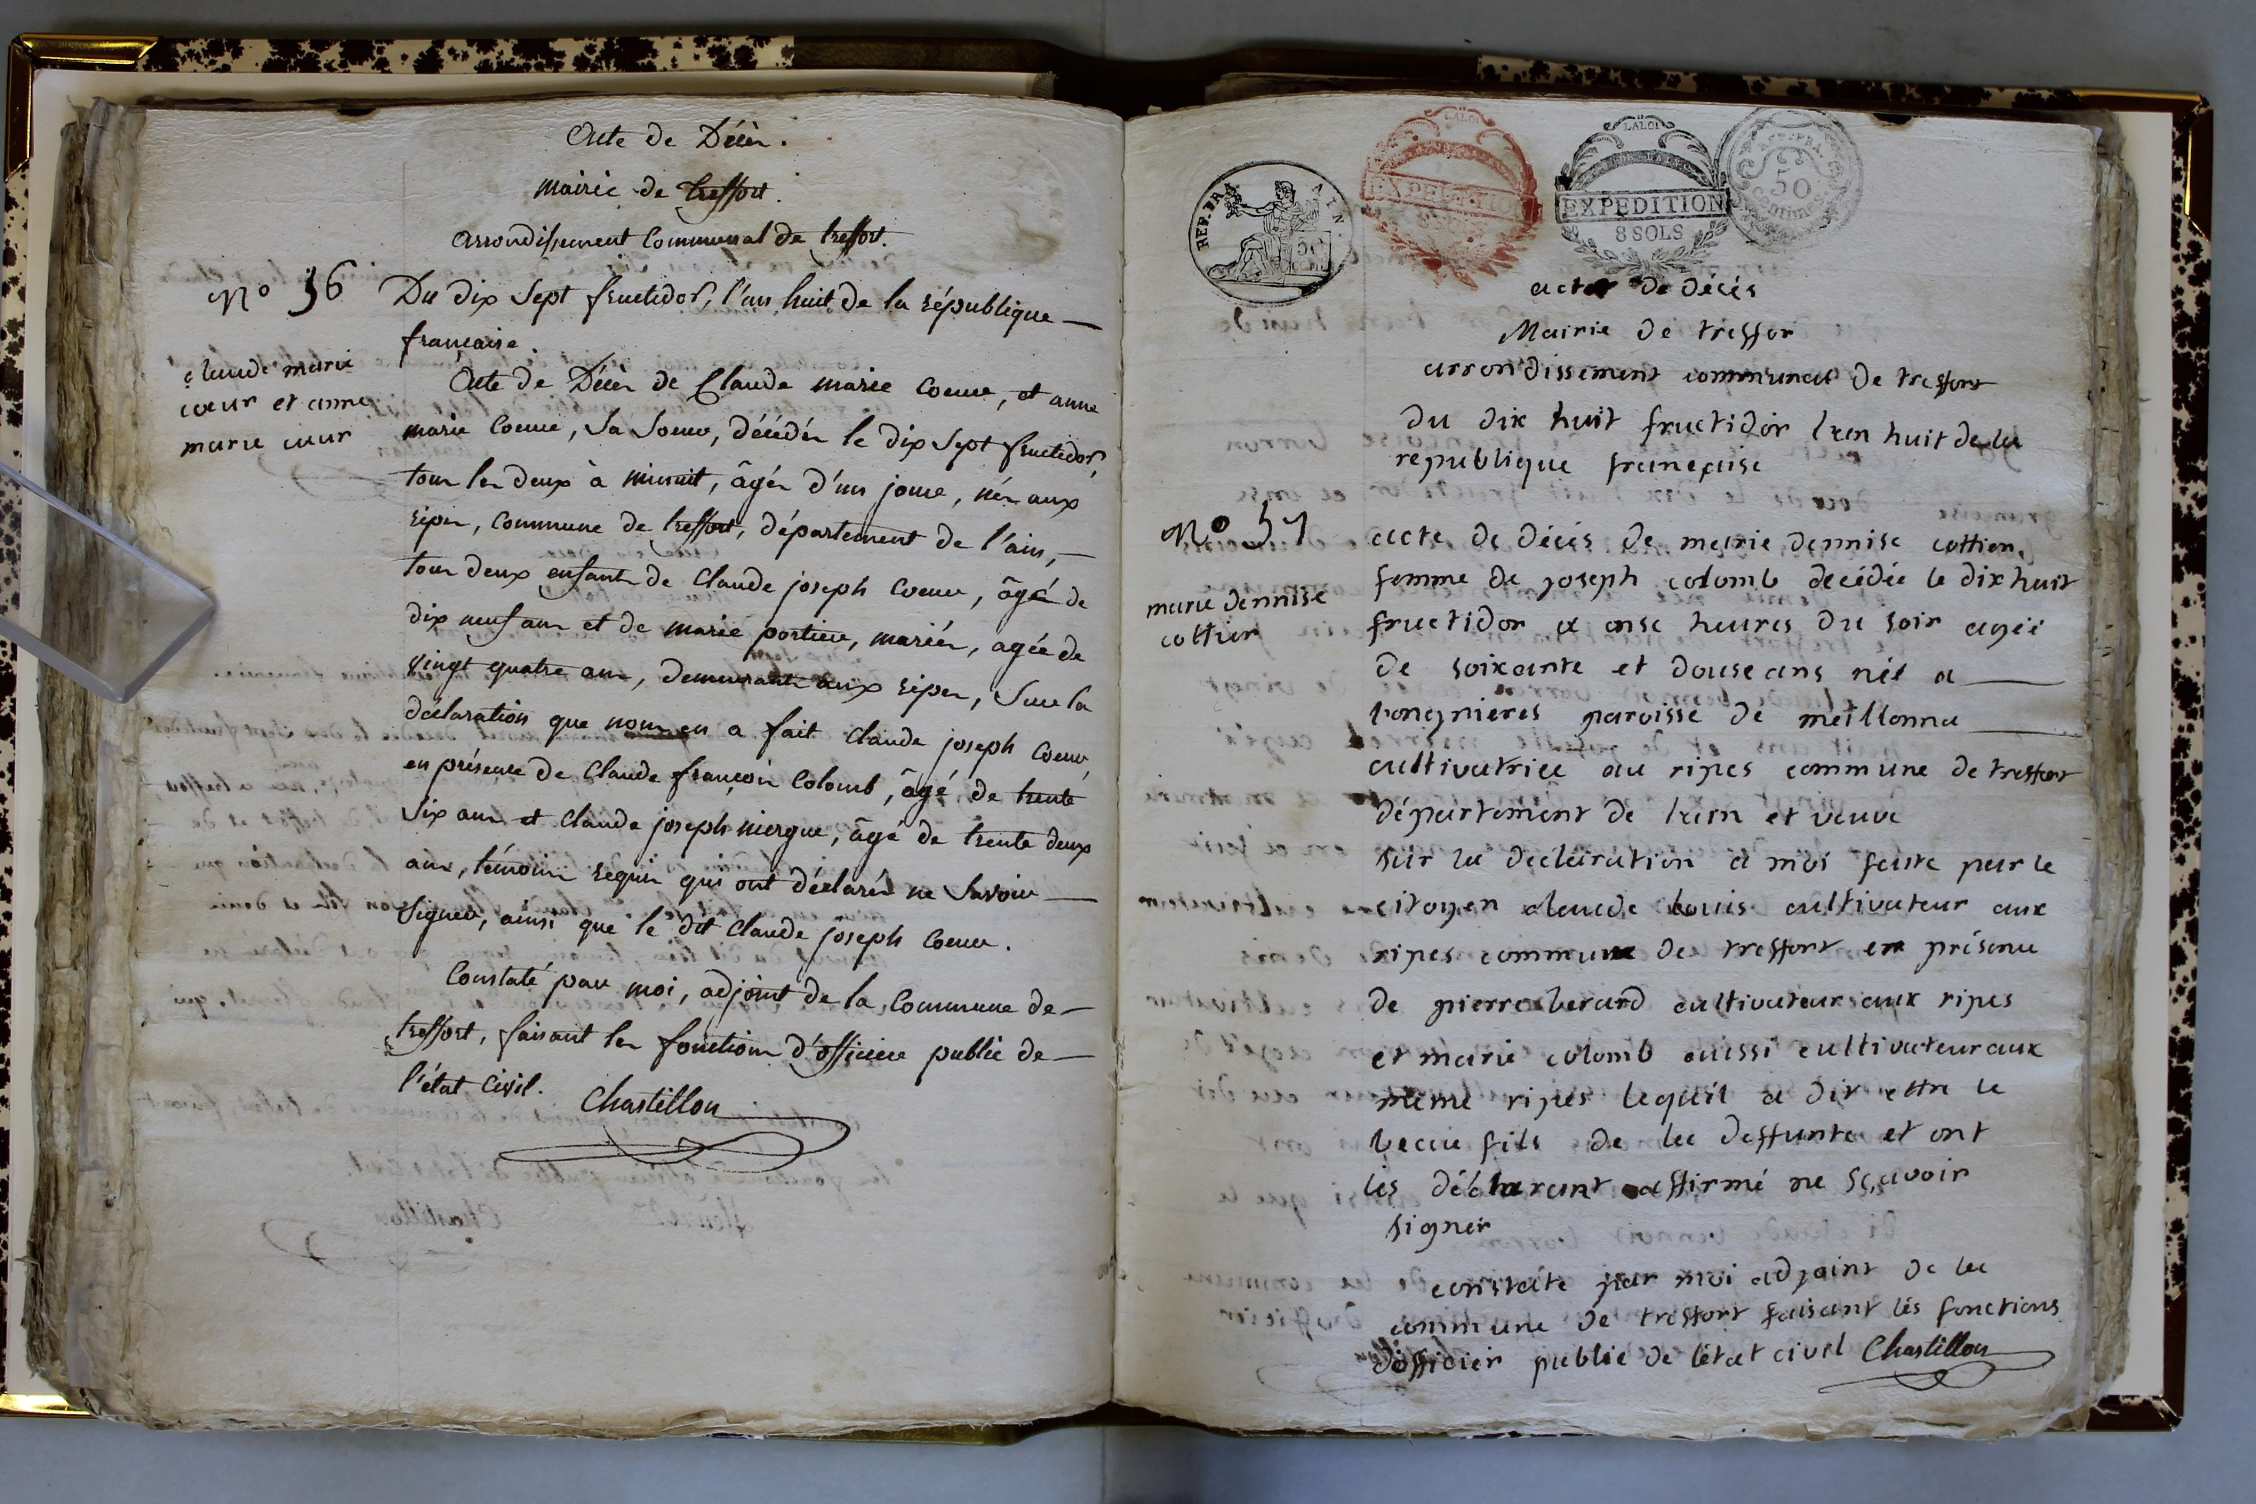 Acte de Décès.
mairie de treffort.
Arrondissement Communal de treffort.
N° 56
Du dix Sept fructidor, l'an huit de la république
française.
claude marie
coeur et anne
marie cœur
Acte de Décès de Claude marie Coeur, et anne
marie Coeur, Sa Soeur, décédés le dix Sept fructidor,
tous les deux à minuit, âgés d'un jour, nés aux
ripes, commune de treffort, département de l'ain,
tous deux enfants de Claude joseph Coeur, âgé de
dix neuf ans et de marie portier, mariés, agée de
vingt quatre ans, demeurants aux ripes, Sur la
déclaration que nous en a fait Claude joseph Coeur
en présence de Claude françois Colomb, âgé de trente
Six ans et Claude joseph niergue, âgé de trente deux
ans, témoins requis qui ont déclarés ne Savoir
Signer, ainsi que le dit Claude joseph Coeur.
Constaté par moi, adjoint de la Commune de
treffort, faisant les fonctions d'officier public de
l'état Civil. Chastillon
REP. FRA
LALOI
EXPEDITION
LALOI
EXPEDITION
8 SOLS
50
Centimes
acte de décés
Mairie de treffor
arrondissement communal de treffort
du dix huit fructidor l'an huit de la
republique franeçaise
N° 57
marie dennise
cottier
acte de décés de marie dennise cottier
femme de joseph colomb decédée le dix huit
fructidor a onse heures du soir agéé
de soixante et douse ans néé a
paroisse de meillonna
cultivatrice au ripes commune de treffort
département de l'ain et veuve
sur la declaration a moi faite par le
citoyen claude louis cultivateur aux
ripes commune de treffort en présence
de pierre berard cultivateur aux ripes
et marie colomb aussi cultivateur aux
méme ripes lequél a dit ettre le
beau fils de la deffunte et ont
lés déclarant affirmé ne sçavoir
signér
constaté par moi adjoint de la
commune de treffort faisant lés fonctions
d'officiér public de l'état civil Chastillon